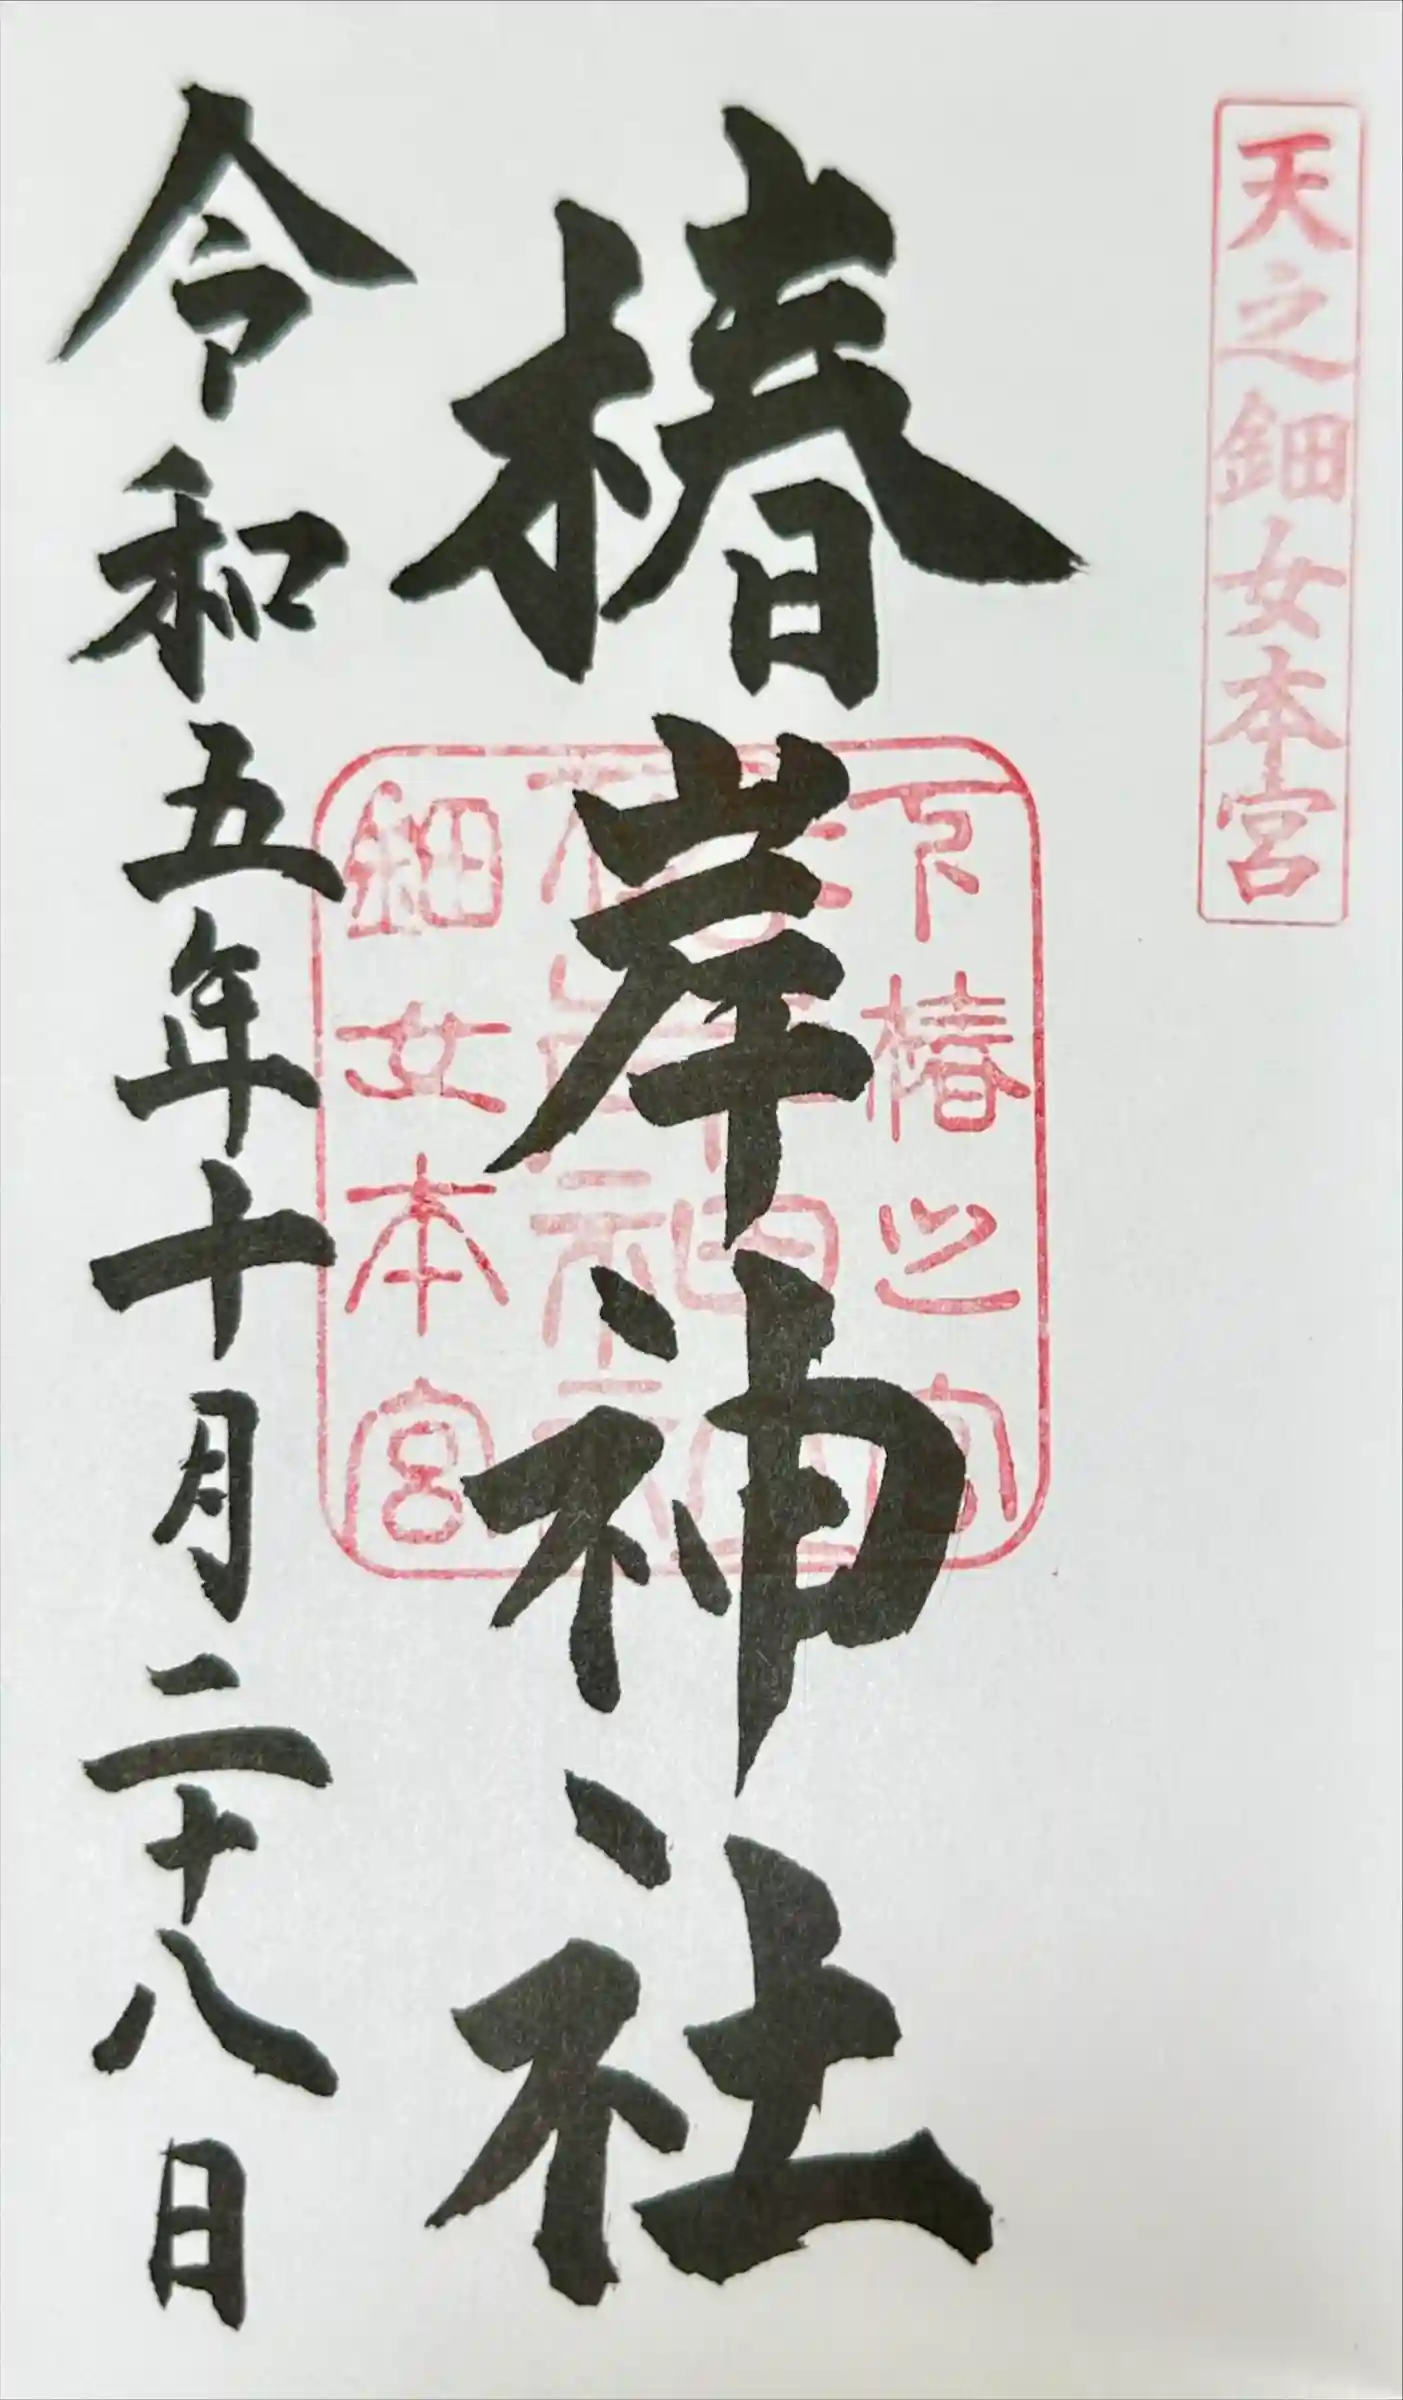 天之鈿女本宮
椿岸神社
下椿之宮
椿岸神社
鈿女本宮
令和五年十月二十八日